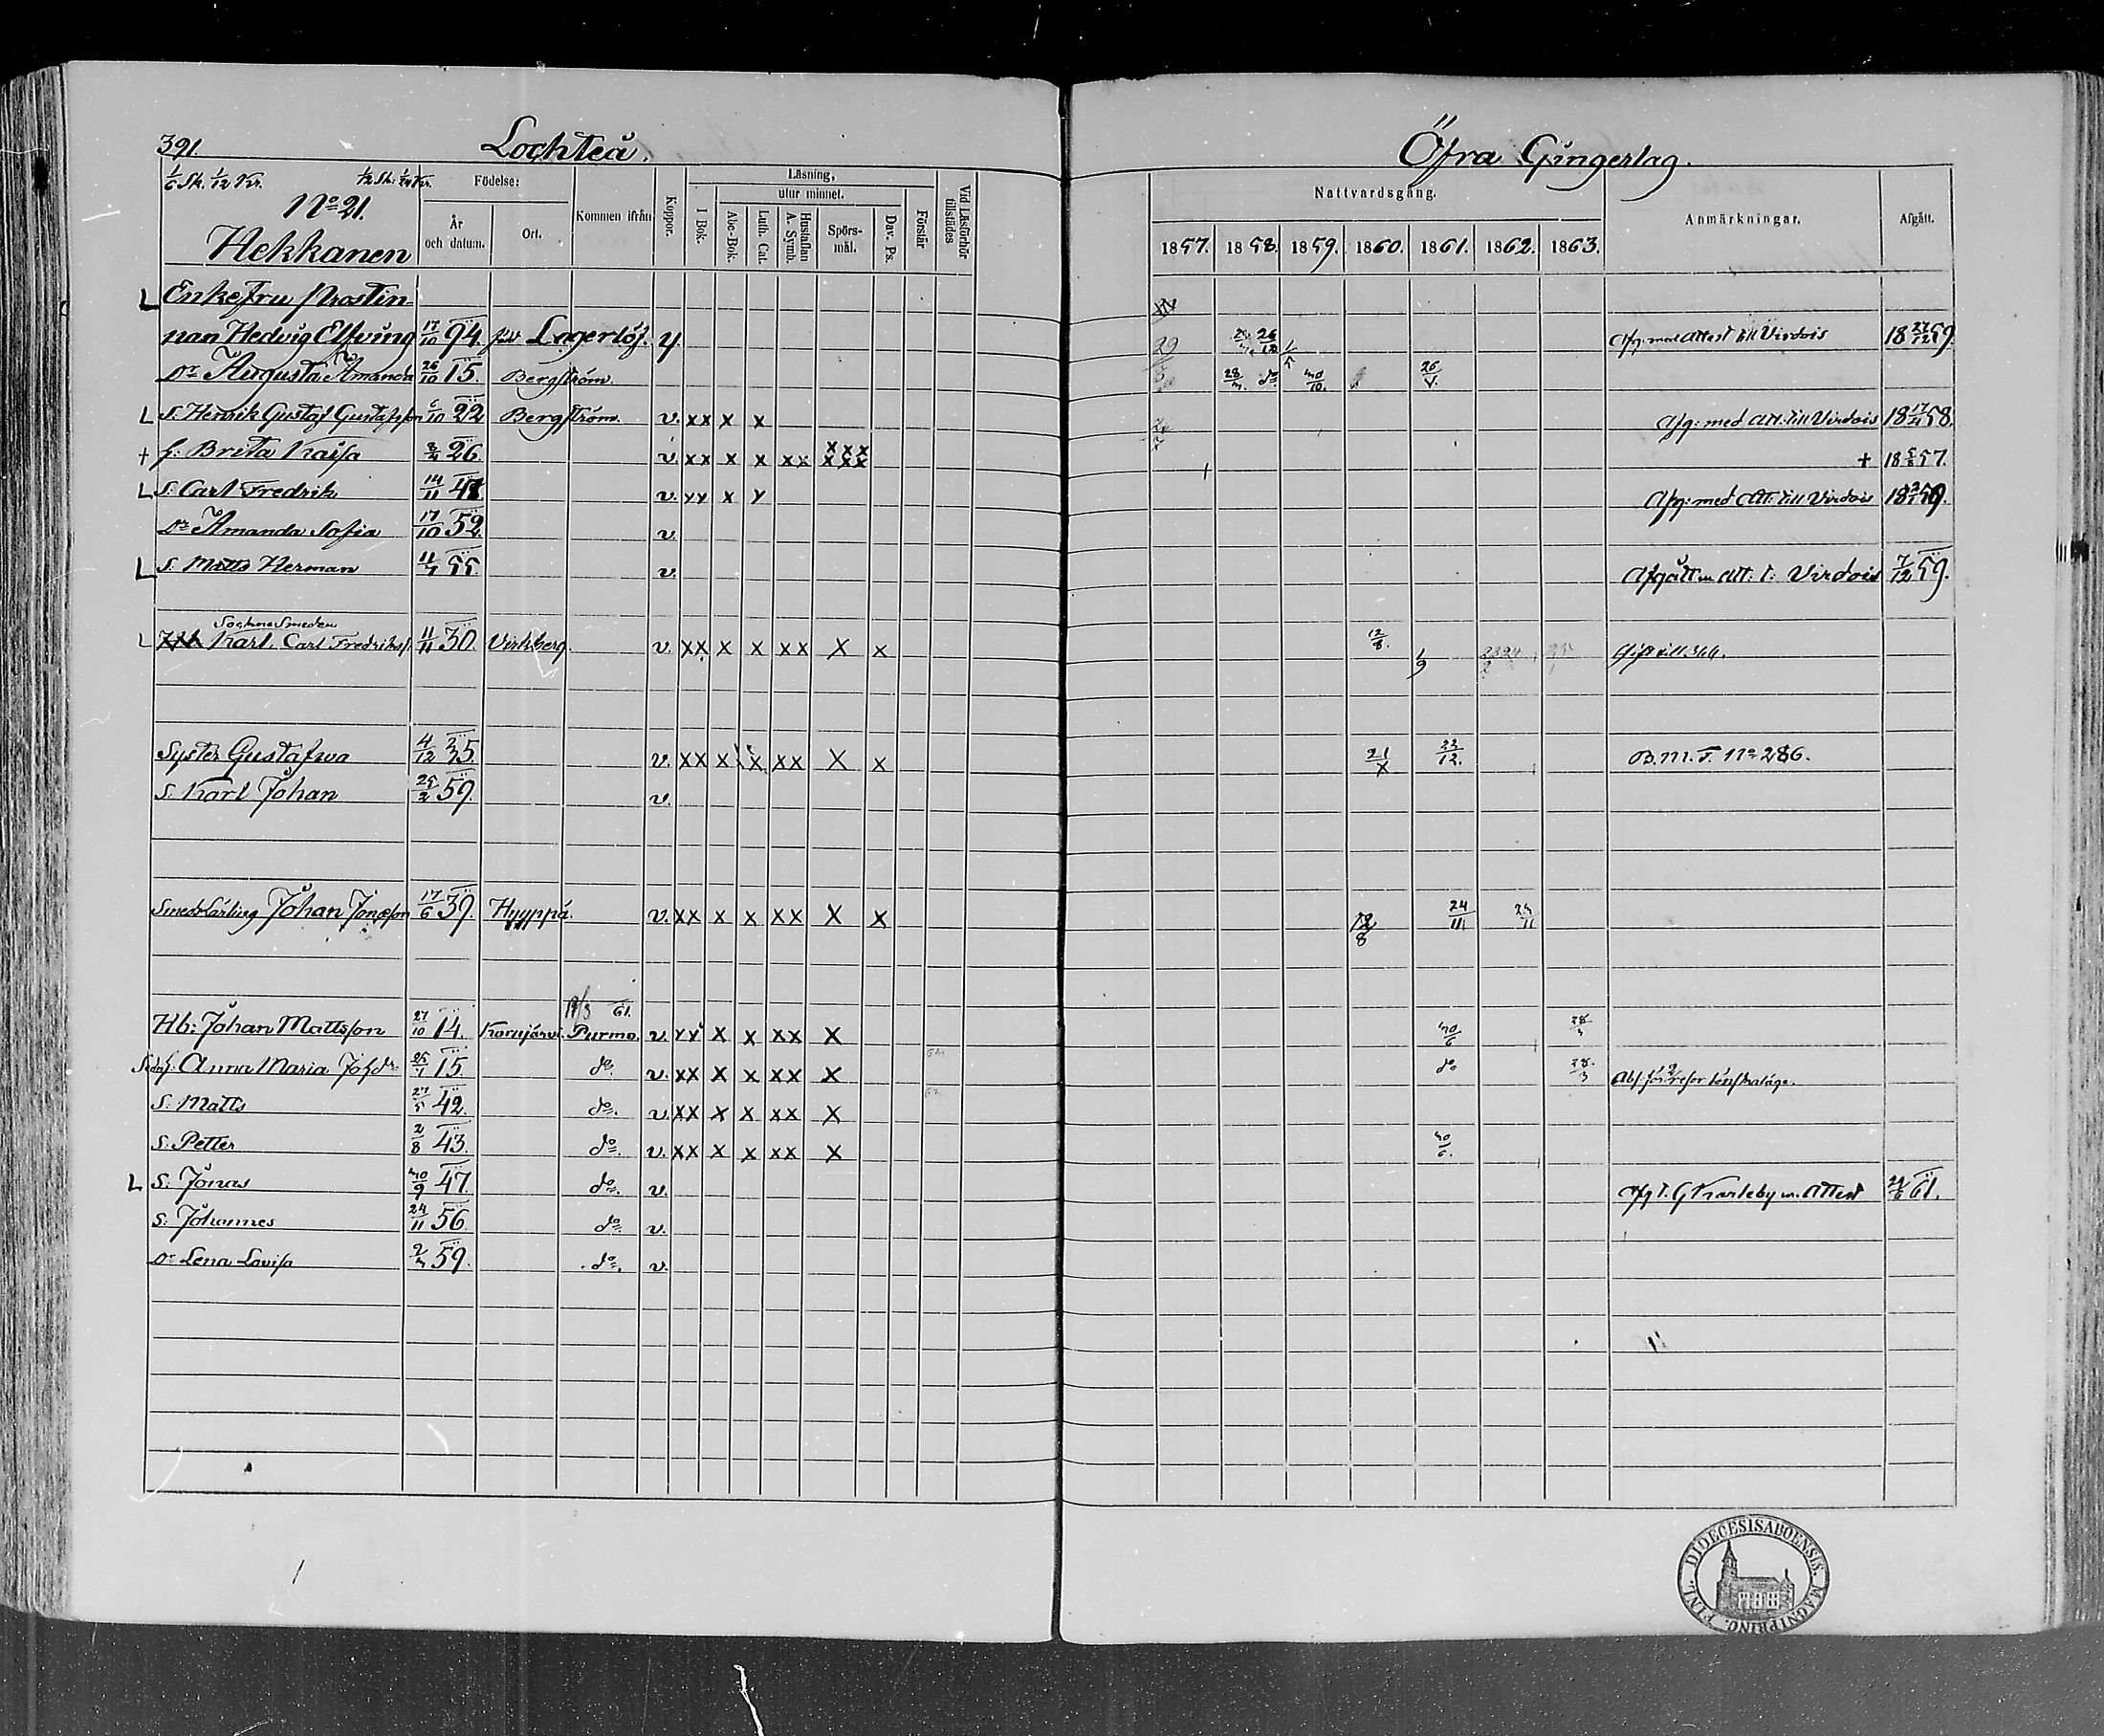 391. Lochteå. Öfra Gingerlag.
1/6 Sk. 1/12 Kr. 1/12 Sk: 1/24 Kr.
No 21.
Hekkanen
Födelse:
År och datum.
Ort.
Kommen ifrån
Koppor.
Läsning,
I Bok.
utur minnet.
Abc-Bok.
Luth. Cat.
Hustaflan A. Symb.
Spörs-mål.
Dav. Ps.
Förstår
Vid Läsförhör tillstädes
Nattvardsgång.
1857. 1858. 1859. 1860. 1861. 1862. 1863.
Anmärkningar.
Afgått.
L Enkefru Prostin-
nan Hedvig Elfving 17/10 94. född Lagerlöf. v. Afg. med Attest till Virdois 18 59.
Dr Augusta Amanda 26/10 15. Bergström. 28 do 30/10. 26/V.
L S. Henrik Gustaf Gustafsson 6/10 22 Bergström. v. xx x x Afg: med Att: till Virdois 18 17 58.
+ h. Brita Kaisa 26. v. xx x x xx xxx xxx + 18 57.
L S. Carl Fredrik 14/11 48. v. xx x x Afg: med Att: till Virdois 18 59.
Dr Amanda Sofia 17/10 52. v.
L S. Matts Herman 55. v. Afgått m Att: t: Virdois 7/12 59.
Sockne Smeden
L Karl. Carl Fredriks. 11/11 30. Virkberg v. xx x x xx x x 12/8. 1/9
Syster Gustafwa 4/12 35. v. xx x x xx x x 21/X 22/12. B.M.F. No 286.
S. Karl Johan 25/2 59. v.
Smeds Lärling Johan Jonasson 17/6 39. Hyyppä. v. xx x x xx x x 24/11 24/11
19/3 61.
Hb: Johan Mattsson 27/10 14. Korujärvi. Purmo. v. xx x x xx x 30/6 28/3
h. Anna Maria Johdr. 25 15. do. v. xx x x xx x do 28/3
S. Matts 27/5 42. do. v. xx x x xx x
S. Petter 2/8 43. do. v. xx x x xx x 30/6.
L S. Jonas 30/9 47. do. v. Afg t. G Karleby m. Attest 61.
S. Johannes 24/11 56. do. v.
Dr Lena Lovisa 2/3 59. do. v.
DIOECESIS ABOENSIS. MAGNI PRINC. FINL.